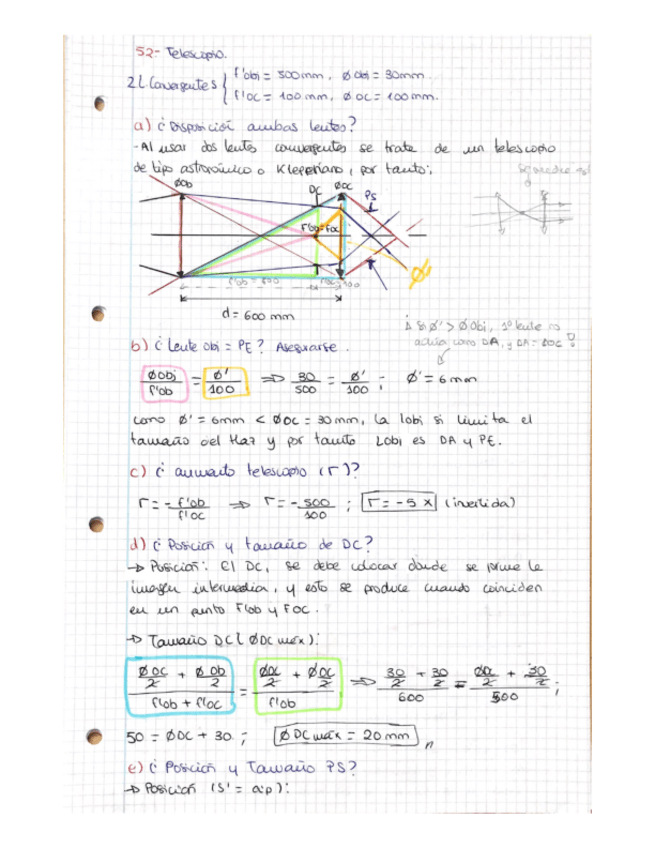 52- Telescopio.
2L Convergentes { f'obj = 500mm, Ø obj = 30mm.
f'oc = 100mm, Ø oc = 100mm.
a) ¿Disposición ambas lentes?
- Al usar dos lentes convergentes se trata de un telescopio
de tipo astronómico o Kepleriano, por tanto:
Øob
DC
Øoc
PS
F'ob=Foc
Ø'
f'ob = 500
f'oc = 100
d = 600 mm
Si Ø' > Øobj, 1ª lente no
actúa como DA, y DA = LOC
b) ¿Lente obj = PE? Asegurarse.
Øobj / f'ob = Ø' / 100 ⇒ 30 / 500 = Ø' / 100 ; Ø' = 6 mm
como Ø' = 6mm < Øoc = 30mm, la Lobj si limita el
tamaño del haz y por tanto Lobj es DA y PE.
c) ¿aumento telescopio (Γ)?
Γ = - f'ob / f'oc ⇒ Γ = - 500 / 100 ; Γ = -5 x (invertida)
d) ¿Posición y tamaño de DC?
→ Posición: El DC, se debe colocar donde se forme la
imagen intermedia, y esto se produce cuando coinciden
en un punto F'ob y Foc.
→ Tamaño DC (ØDC máx):
(Øoc/2 + Øob/2) / (f'ob + f'oc) = (Øoc/2 + Øoc/2) / f'ob ⇒ (30/2 + 30/2) / 600 = (Øoc/2 + 30/2) / 500 ;
50 = ØDC + 30 ; ØDC máx = 20 mm
e) ¿Posición y Tamaño PS?
→ Posición (s' = a'p):